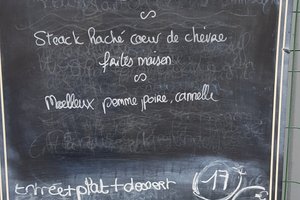 Steack Haché coeur de chèvre
frites maison
Moelleux pomme, poire, cannelle
Entrée + plat + dessert 17